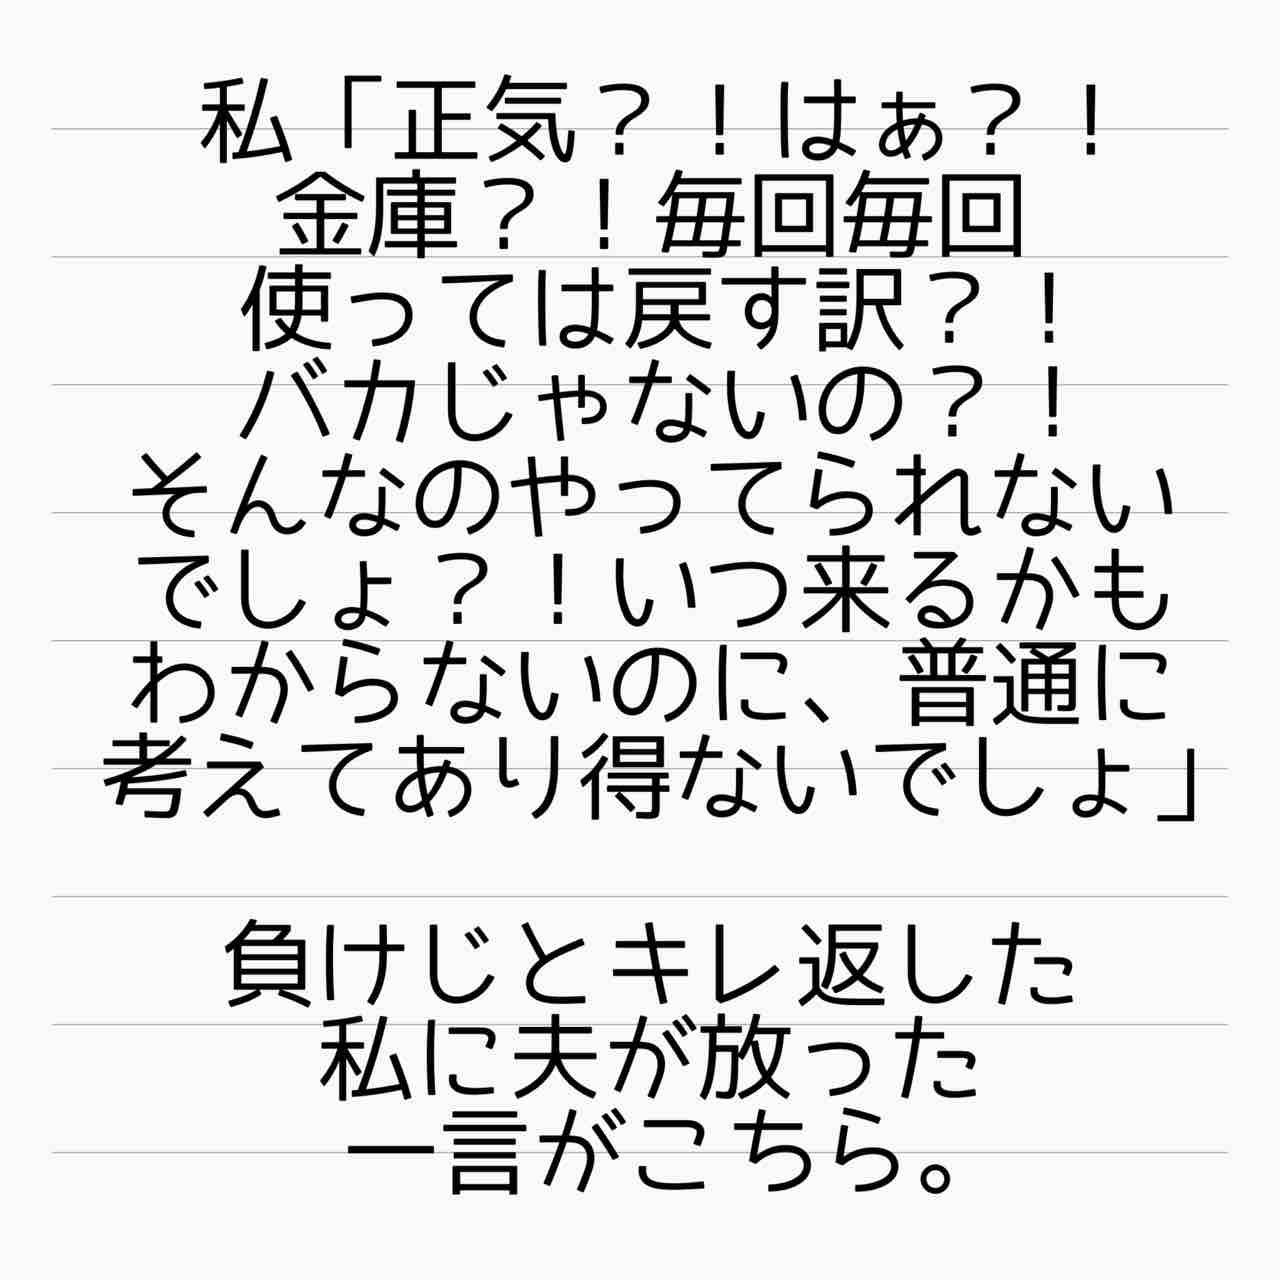 私「正気？！はぁ？！
金庫？！毎回毎回
使っては戻す訳？！
バカじゃないの？！
そんなのやってられない
でしょ？！いつ来るかも
わからないのに、普通に
考えてあり得ないでしょ」
負けじとキレ返した
私に夫が放った
一言がこちら。